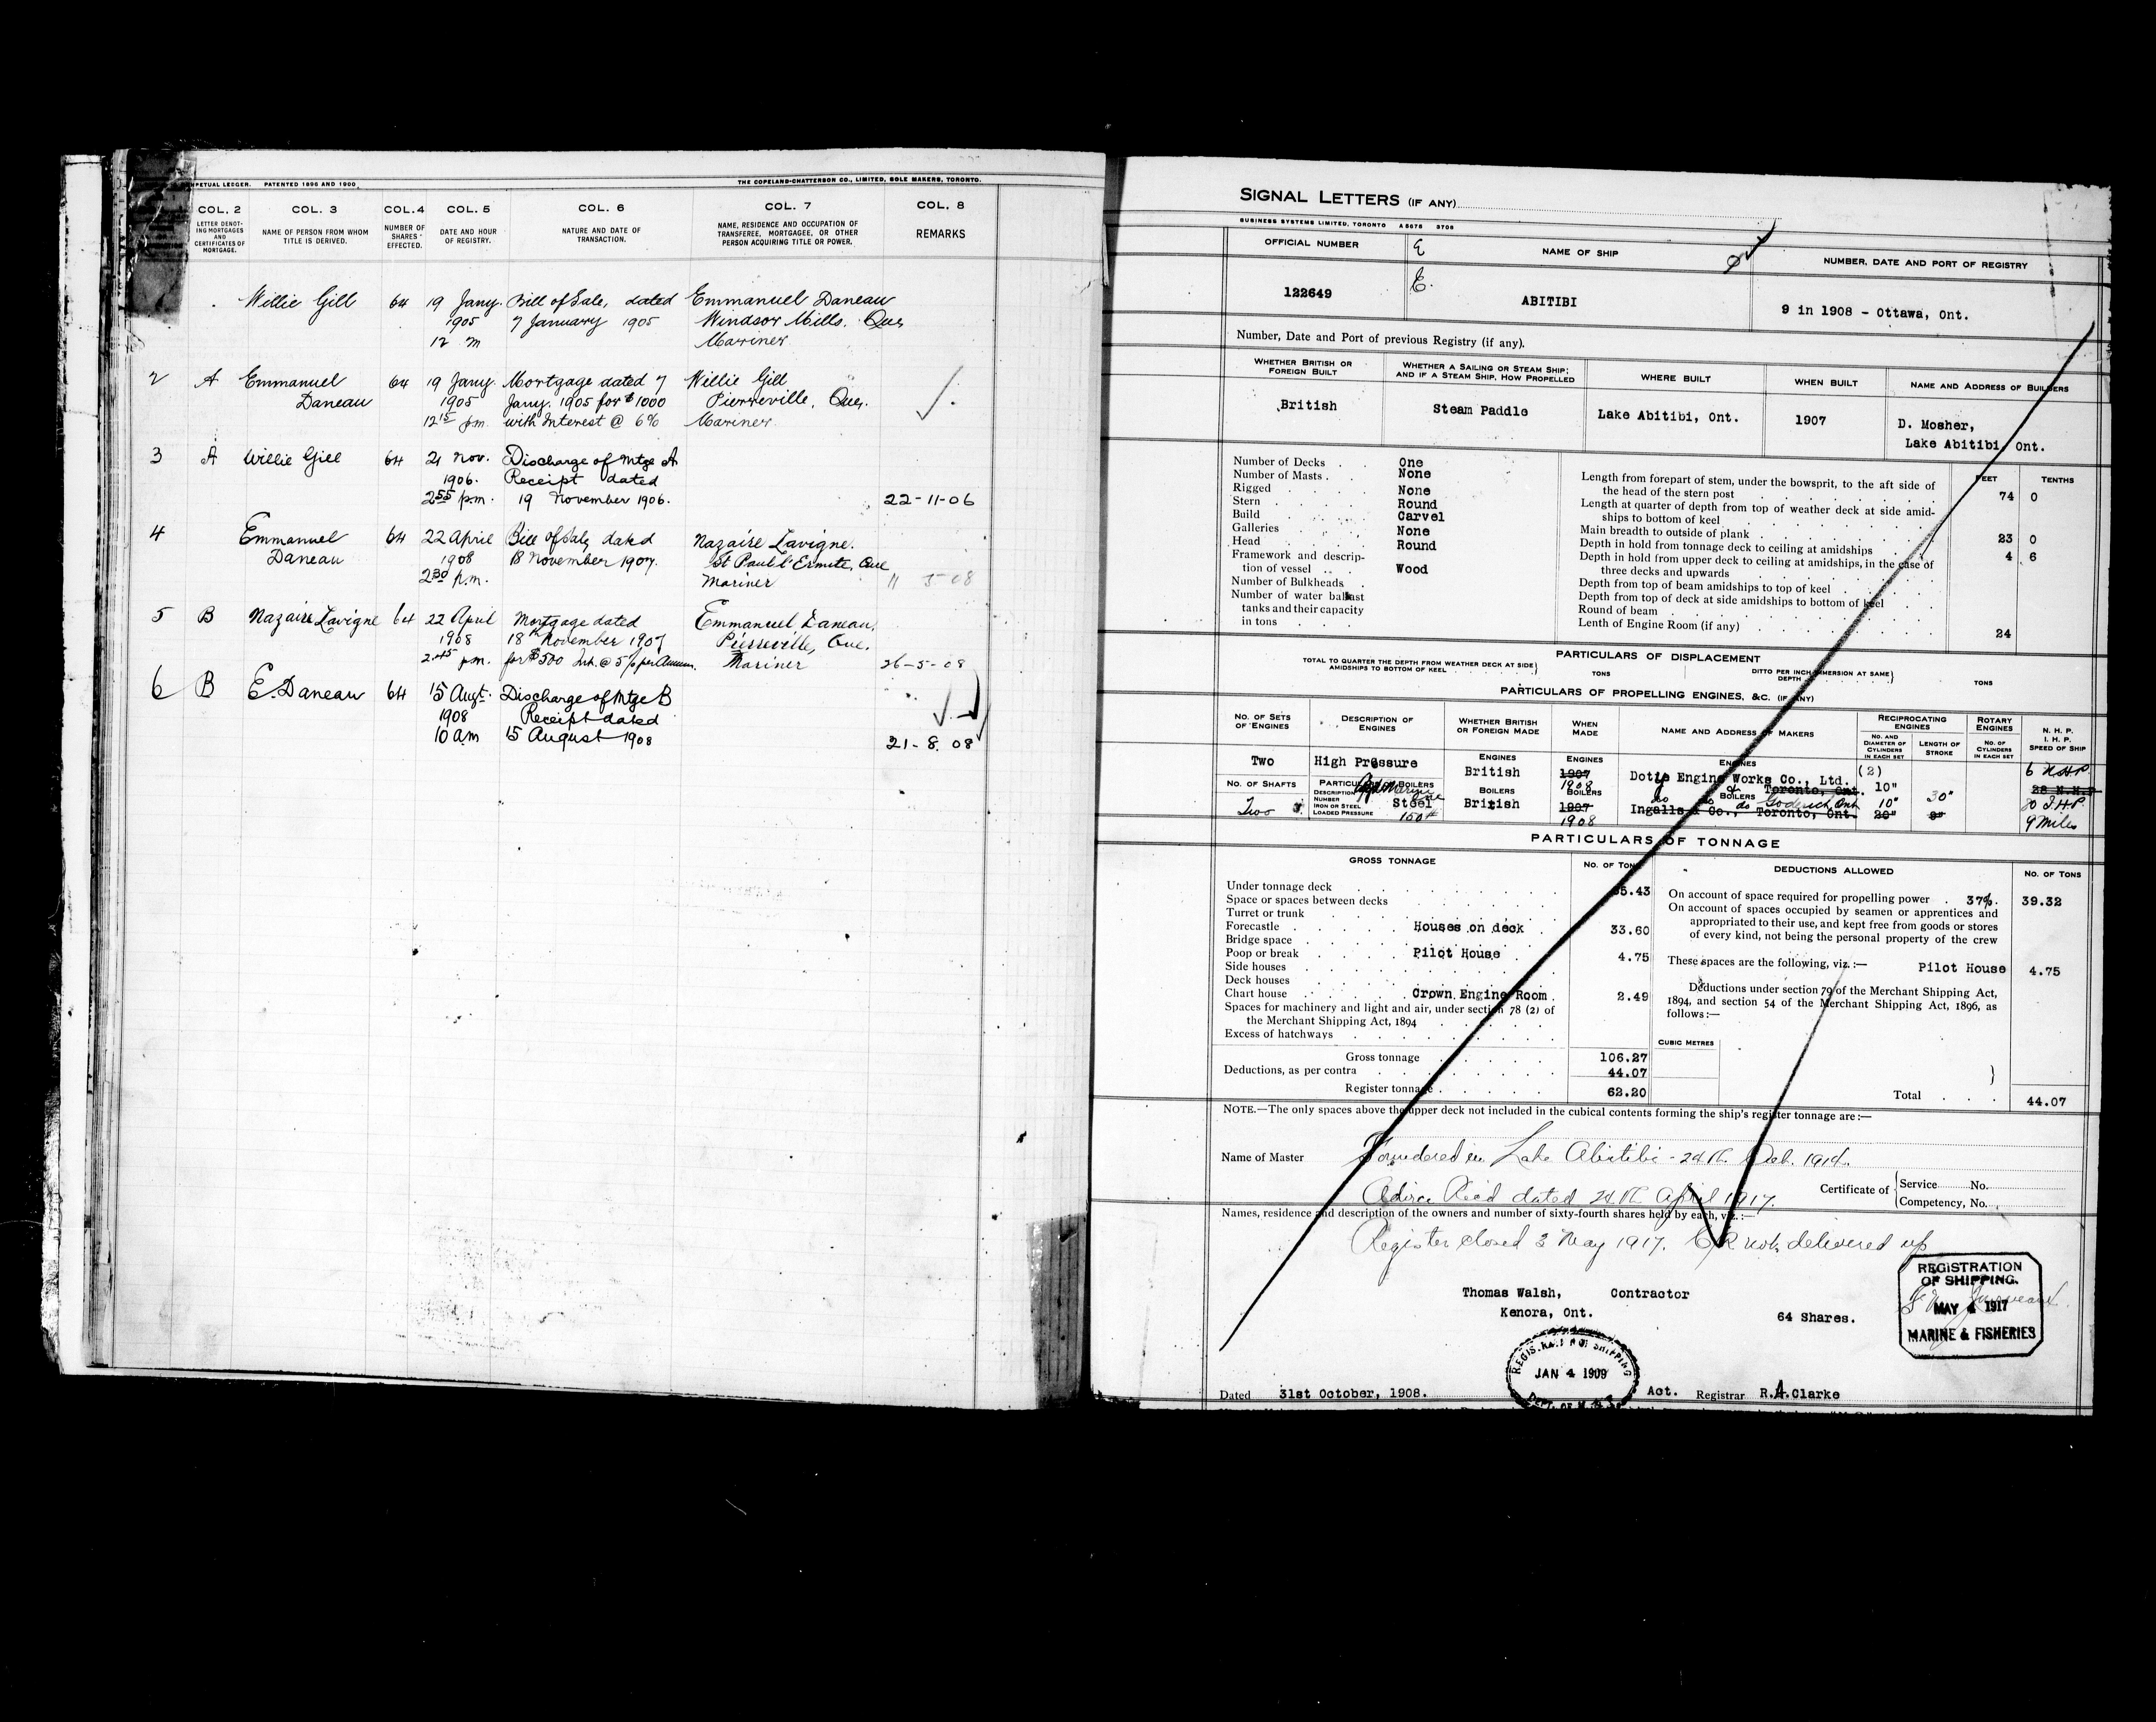 PERPETUAL LEDGER. PATENTED 1896 AND 1900
THE COPELAND-CHATTERSON CO., LIMITED, SOLE MAKERS, TORONTO.
COL. 2 COL. 3 COL. 4 COL. 5 COL. 6 COL. 7 COL. 8
LETTER DENOTING MORTGAGES AND CERTIFICATES OF MORTGAGE.
NAME OF PERSON FROM WHOM TITLE IS DERIVED.
NUMBER OF SHARES EFFECTED.
DATE AND HOUR OF REGISTRY.
NATURE AND DATE OF TRANSACTION.
NAME, RESIDENCE AND OCCUPATION OF TRANSFEREE, MORTGAGEE, OR OTHER PERSON ACQUIRING TITLE OR POWER.
REMARKS
Willie Gill 64 19 Jany. Bill of Sale, dated Emmanuel Daneau
1905 7 January 1905 Windsor Mills. Que,
12 m Mariner
2 A Emmanuel 64 19 Jany Mortgage dated 7 Willie Gill
Daneau 1905 Jany. 1905 for $1000 Pierreville, Que.
12 15 pm. with Interest @ 6% Mariner
3 A Willie Gill 64 21 Nov. Discharge of Mtge A
1906. Receipt dated
2 55 p.m. 19 November 1906. 22-11-06
4 Emmanuel 64 22 April Bill of Sale dated Nazaire Lavigne.
Daneau 1908 18 November 1907. St Paul l'Ermite, Que
2 30 p.m. Mariner 11 5-08
5 B Nazaire Lavigne 64 22 April Mortgage dated Emmanuel Daneau,
1908 18th November 1907 Pierreville, Que.
2.45 pm. for $500 Int. @ 5% per Annum. Mariner 26-5-08
6 B E. Daneau 64 15 Augt. Discharge of Mtge B
1908 Receipt dated
10 am 15 August 1908 21-8.08
SIGNAL LETTERS (IF ANY)
BUSINESS SYSTEMS LIMITED, TORONTO A5676 3706
OFFICIAL NUMBER NAME OF SHIP NUMBER, DATE AND PORT OF REGISTRY
122649 ABITIBI 9 in 1908 - Ottawa, Ont.
Number, Date and Port of previous Registry (if any).
WHETHER BRITISH OR FOREIGN BUILT
WHETHER A SAILING OR STEAM SHIP; AND IF A STEAM SHIP, HOW PROPELLED
WHERE BUILT WHEN BUILT NAME AND ADDRESS OF BUILDERS
British Steam Paddle Lake Abitibi, Ont. 1907 D. Mosher,
Lake Abitibi, Ont.
Number of Decks One
Number of Masts None
Rigged None
Stern Round
Build Carvel
Galleries None
Head Round
Framework and description of vessel Wood
Number of Bulkheads
Number of water ballast
tanks and their capacity
in tons
FEET TENTHS
Length from forepart of stem, under the bowsprit, to the aft side of
the head of the stern post 74 0
Length at quarter of depth from top of weather deck at side amidships to bottom of keel
Main breadth to outside of plank 23 0
Depth in hold from tonnage deck to ceiling at amidships 4 6
Depth in hold from upper deck to ceiling at amidships, in the case of
three decks and upwards
Depth from top of beam amidships to top of keel
Depth from top of deck at side amidships to bottom of keel
Round of beam
Lenth of Engine Room (if any) 24
PARTICULARS OF DISPLACEMENT
TOTAL TO QUARTER THE DEPTH FROM WEATHER DECK AT SIDE AMIDSHIPS TO BOTTOM OF KEEL TONS
DITTO PER INCH IMMERSION AT SAME DEPTH TONS
PARTICULARS OF PROPELLING ENGINES, &C. (IF ANY)
NO. OF SETS OF ENGINES
DESCRIPTION OF ENGINES
WHETHER BRITISH OR FOREIGN MADE
WHEN MADE
NAME AND ADDRESS OF MAKERS
RECIPROCATING ENGINES
NO. AND DIAMETER OF CYLINDERS IN EACH SET
LENGTH OF STROKE
ROTARY ENGINES
NO. OF CYLINDERS IN EACH SET
N. H. P.
I. H. P.
SPEED OF SHIP
ENGINES ENGINES ENGINES
Two High Pressure British 1907 Doty Engine Works Co., Ltd. (2) 6 NHP
1908 Toronto, Ont. 10" 28 N.H.P
NO. OF SHAFTS PARTICULARS OF BOILERS BOILERS BOILERS BOILERS
DESCRIPTION
NUMBER
IRON OR STEEL
LOADED PRESSURE
Two Steel 150# British 1907 do do do Goderich Ont 10" 30" 80 I.H.P.
1908 Ingalls & Co., Toronto, Ont. 20" 9 Miles
PARTICULARS OF TONNAGE
GROSS TONNAGE NO. OF TONS DEDUCTIONS ALLOWED NO. OF TONS
Under tonnage deck 65.43
Space or spaces between decks
Turret or trunk
Forecastle Houses on deck 33.60
Bridge space
Poop or break Pilot House 4.75
Side houses
Deck houses
Chart house Crown Engine Room 2.49
Spaces for machinery and light and air, under section 78 (2) of
the Merchant Shipping Act, 1894
Excess of hatchways
Gross tonnage 106.27
Deductions, as per contra 44.07
Register tonnage 62.20
On account of space required for propelling power 37%. 39.32
On account of spaces occupied by seamen or apprentices and
appropriated to their use, and kept free from goods or stores
of every kind, not being the personal property of the crew
These spaces are the following, viz.:— Pilot House 4.75
Deductions under section 79 of the Merchant Shipping Act,
1894, and section 54 of the Merchant Shipping Act, 1896, as
follows:—
CUBIC METRES
Total 44.07
NOTE.—The only spaces above the upper deck not included in the cubical contents forming the ship's register tonnage are:—
Name of Master Foundered in Lake Abitibi - 24th Oct. 1914.
Advice Rec'd dated 24th April 1917.
Certificate of Service No.
Competency, No.
Names, residence and description of the owners and number of sixty-fourth shares held by each, viz.:—
Register closed 3 May 1917. C/R not delivered up
Thomas Walsh, Contractor
Kenora, Ont. 64 Shares.
REGISTRATION
OF SHIPPING.
MAY 4 1917
MARINE & FISHERIES
REGISTRAR OF SHIPPING
JAN 4 1909
Dated 31st October, 1908. Act. Registrar R.A.Clarke